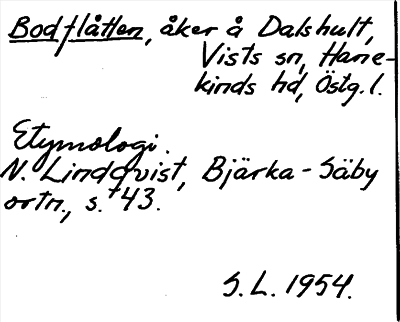 Bodflåtten, åker å Dalshult,
Vists sn, Hane-
kinds hd, Östg. l.
Etymologi.
N. Lindqvist, Bjärka-Säby
ortn., s. 43.
S.L. 1954.